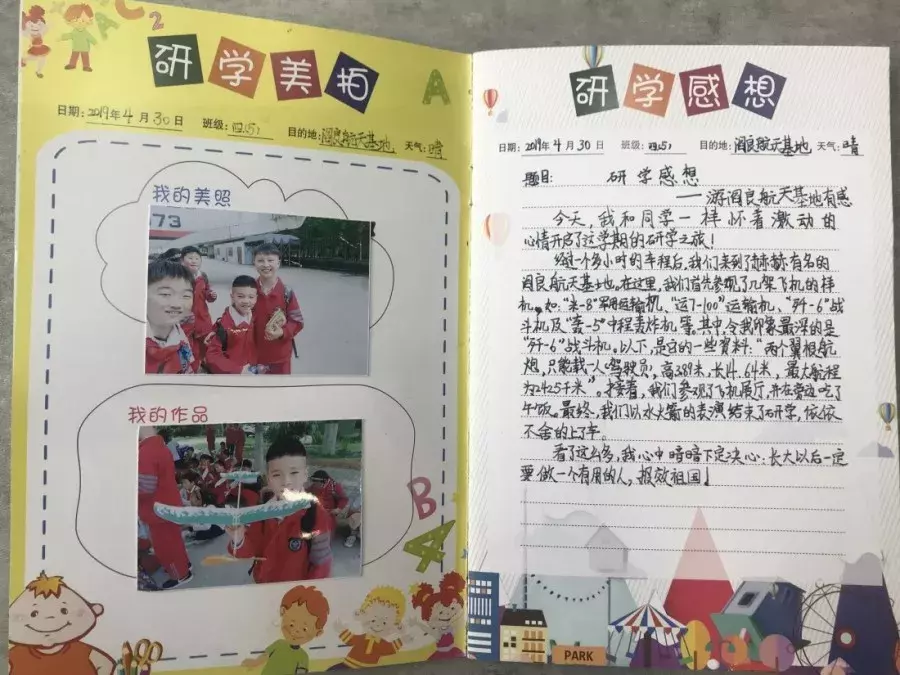 研学美拍
日期:2019年4月30日 班级:四(5) 目的地:阎良航天基地 天气:晴
我的美照
73
我的作品
A
B
研学感想
日期:2019年4月30日 班级:四(5) 目的地:阎良航天基地 天气:晴
题目: 研学感想
——游阎良航天基地有感
今天,我和同学一样怀着激动的
心情开启了这学期的研学之旅!
经过一个多小时的车程后,我们来到了赫赫有名的
阎良航天基地。在这里,我们首先参观了几架飞机的样
机。如:“米-8”军用运输机、“运7-100”运输机、“歼-6”战
斗机及“轰-5”中程轰炸机等。其中,令我印象最深的是
“歼-6”战斗机。以下,是它的一些资料:“两个翼根航
炮,只能载一人(驾驶员),高3.89米,长14.64米,最大航程
为2425千米”。接着,我们参观了飞机展厅,并在旁边吃了
午饭。最终,我们以水火箭的表演结束了研学,依依
不舍的上了车。
看了这么多,我心中暗暗下定决心:长大以后一定
要做一个有用的人,报效祖国!
PARK